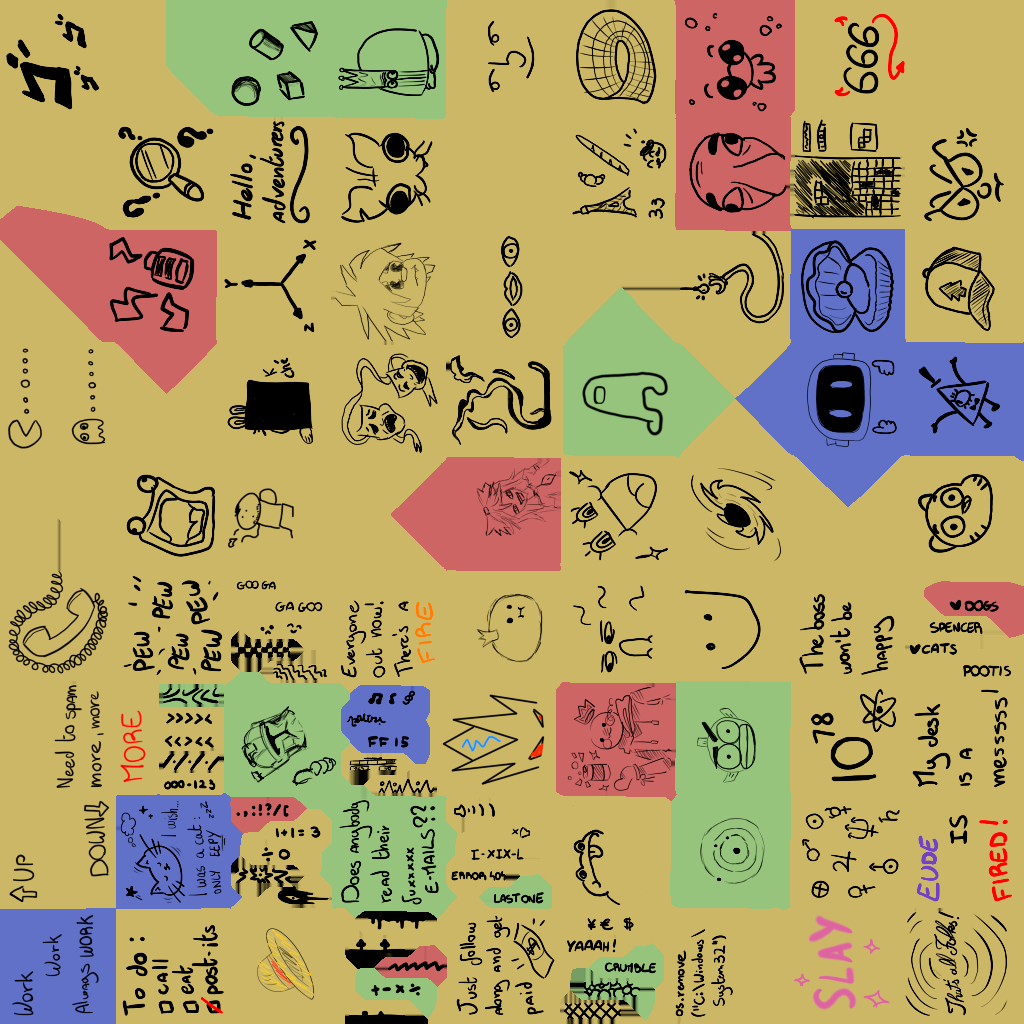 666
Hello,
adventurers
33
X
Y
Z
K'i
chi
GOO GA
GA GOO
PEW
PEW
PEW
PEW
PEW
Everyone
out now!
There's A
FIRE
The boss
won't be
happy
♥ DOGS
SPENCER
♥CATS
POOTIS
Need to spam
more, more
MORE
000-123
FF 15
10⁷⁸
My desk
IS A
messsss!
UP
DOWN
I wish...
I was a cat:
ONLY EEPY
zzz
. , : ! ? / (
1+1=3
Does anybody
read their
fuxxxxx
E-MAILS??
I-XIX-L
ERROR 404
LAST ONE
EUDE
IS
FIRED!
Work
Work
Always WORK
To do:
call
eat
post-its
+ - × ÷
Just follow
along and get
paid
¥ € $
YAAAH!
CRUMBLE
os.remove
("C:\Windows\
System32")
SLAY
That's all Folks!